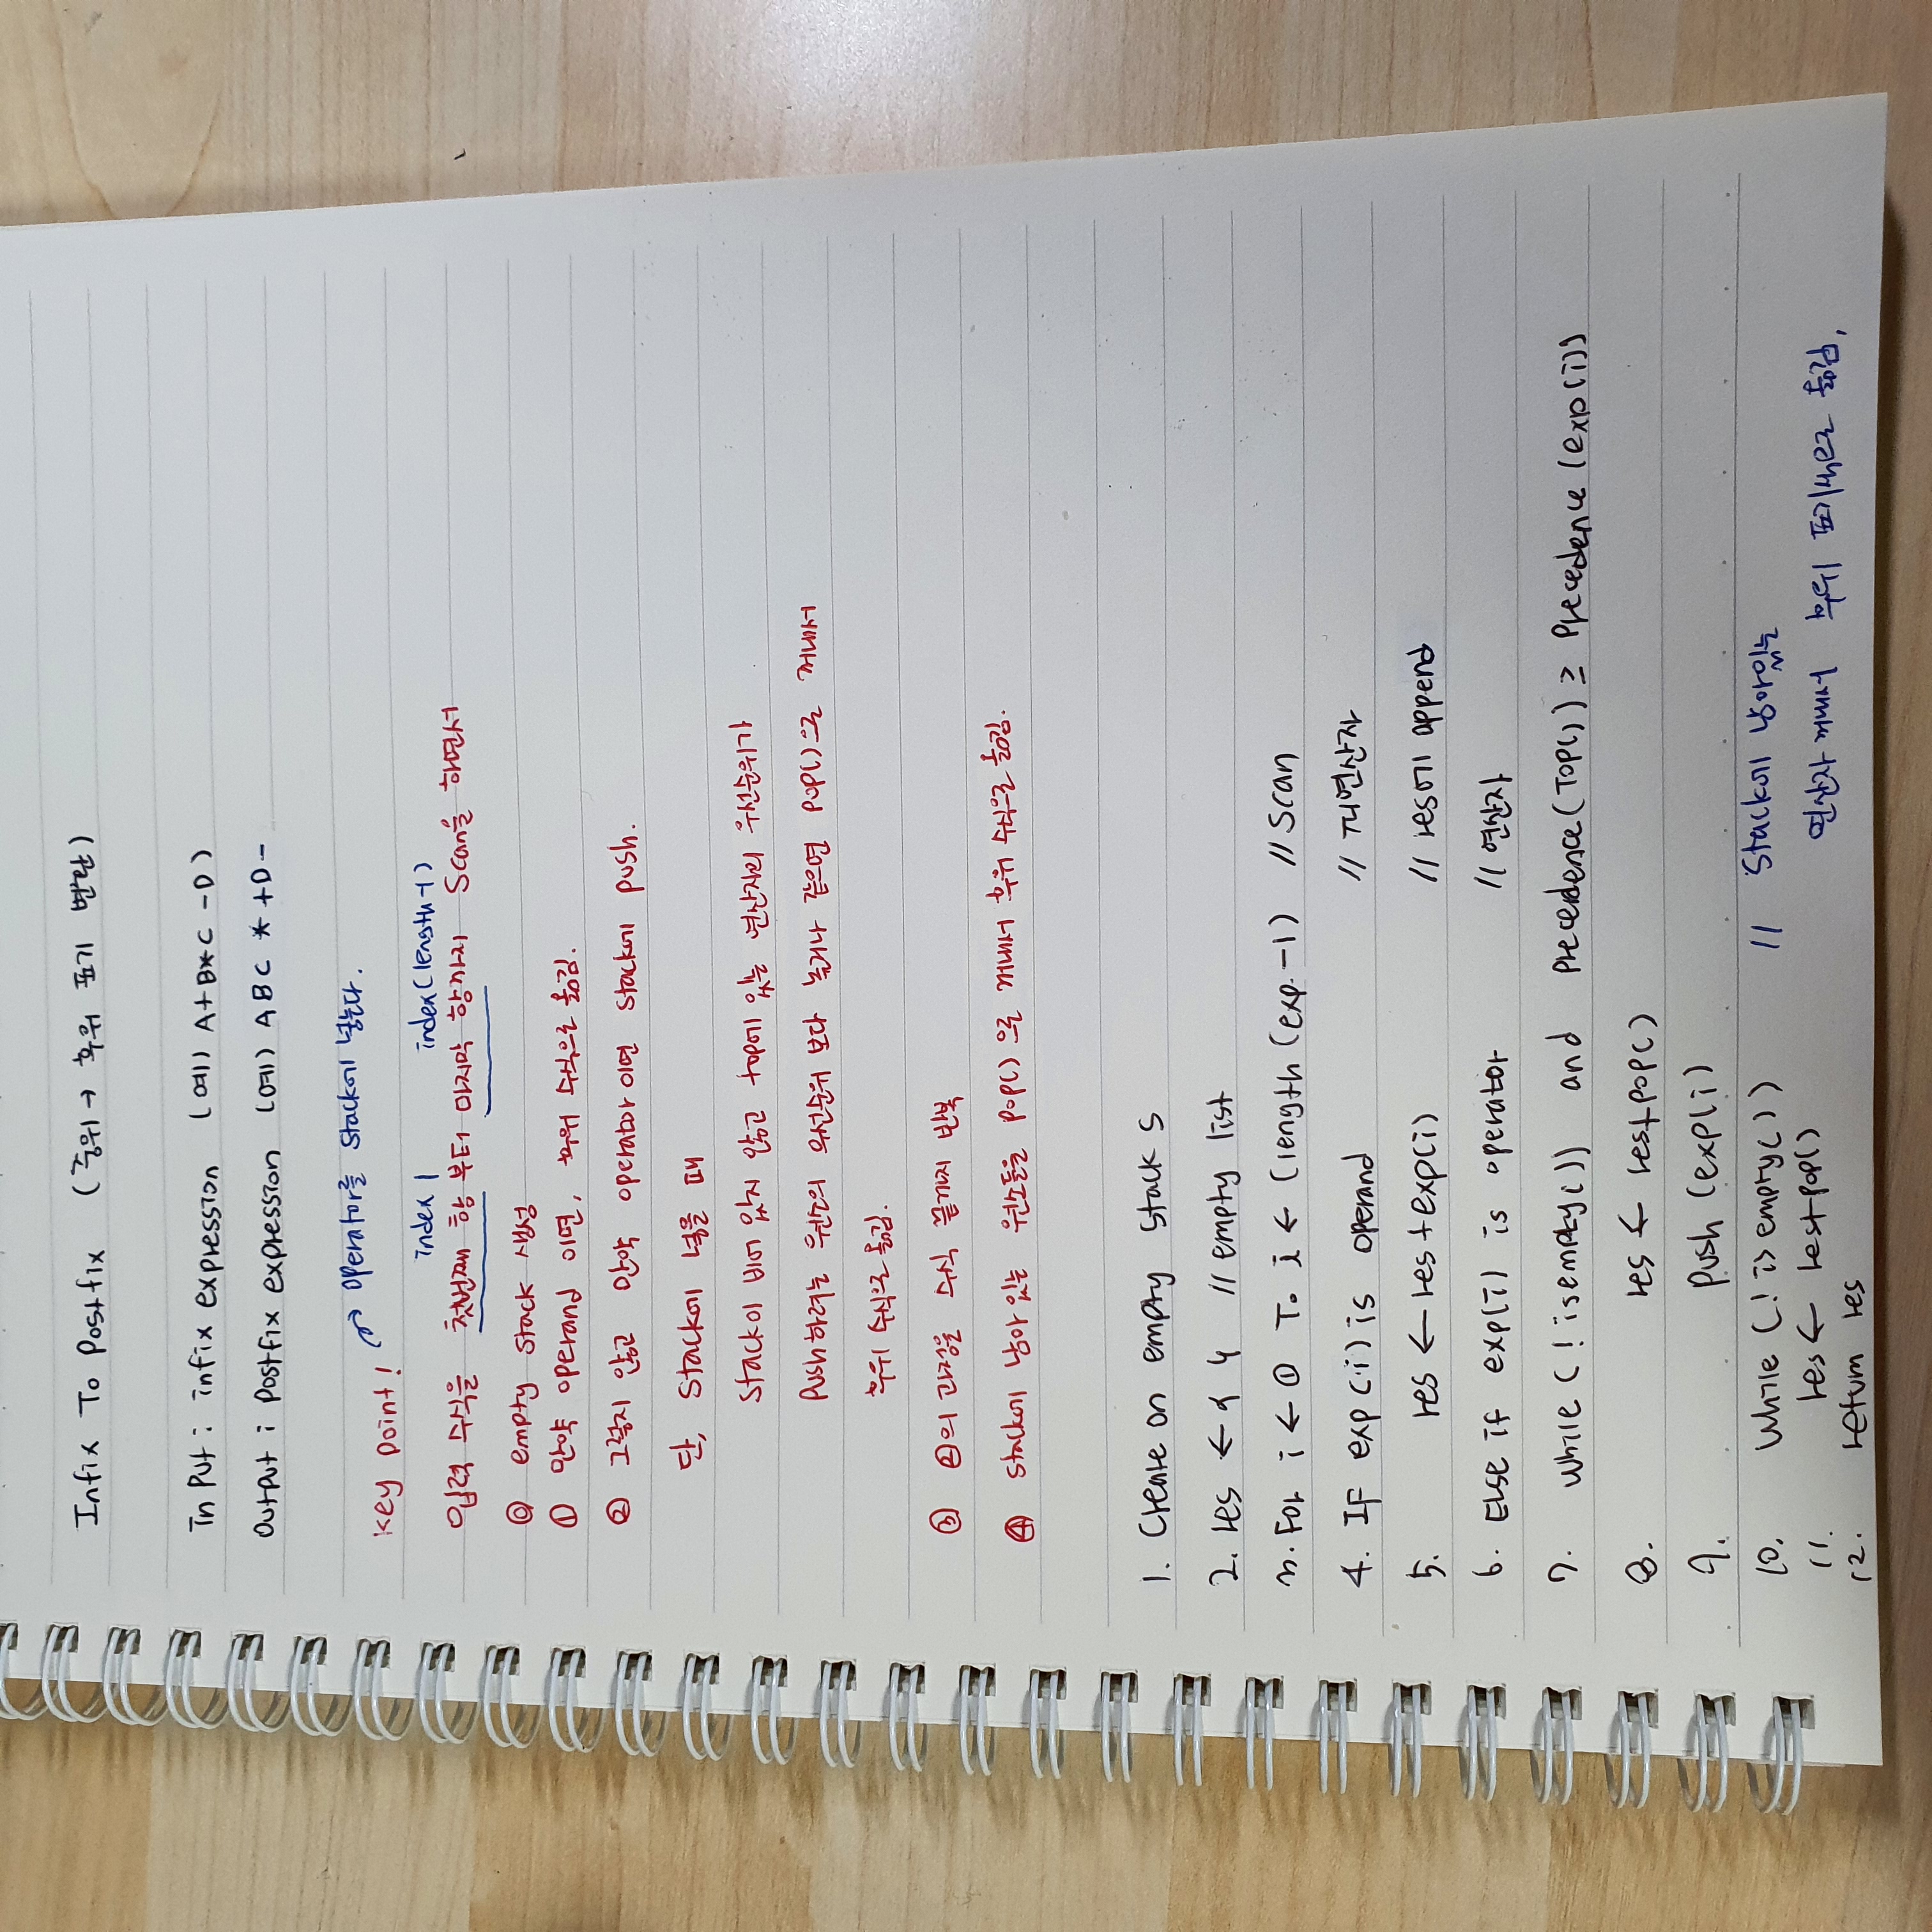 Infix To Postfix (중위→ 후위 표기 변환)
input : infix expression (예) A+B*C -D)
Output : Postfix expression (예) ABC * +D-
→ operator를 stack에 넣는다.
Key point!
index 1 index(length-1)
입력 수식을 첫번째 항 부터 마지막 항까지 Scan을 하면서
⓪ empty stack 생성
① 만약 operand 이면, 후위 수식으로 옮김.
② 그렇지 않고 만약 operator 이면 stack에 push.
단, Stack에 넣을 때
Stack이 비어 있지 않고 top에 있는 연산자의 우선순위가
Push하려는 원소의 우선순위 보다 높거나 같으면 pop()으로 꺼내서
후위 수식으로 옮김.
③ ②의 과정을 수식 끝까지 반복
④ Stack에 남아 있는 원소들을 pop()으로 꺼내서 후위 수식으로 옮김.
1. Create on empty stack S
2. res ← { } // empty list
3. For i ← ① To i ← (length (exp.-1) // Scan
4. IF exp(i) is operand // 피연산자
5. res ← res + exp(i) // res에 append
6. Else if exp(i) is operator // 연산자
7. While (! isempty()) and Precedence(TOP()) ≥ Precedence (exp(i))
8. res ← res+pop()
9. push (exp(i)
10. While (! is empty()) // Stack에 남아있는
11. res ← res+pop() 연산자 꺼내서 후위 표기식으로 옮김.
12. return res